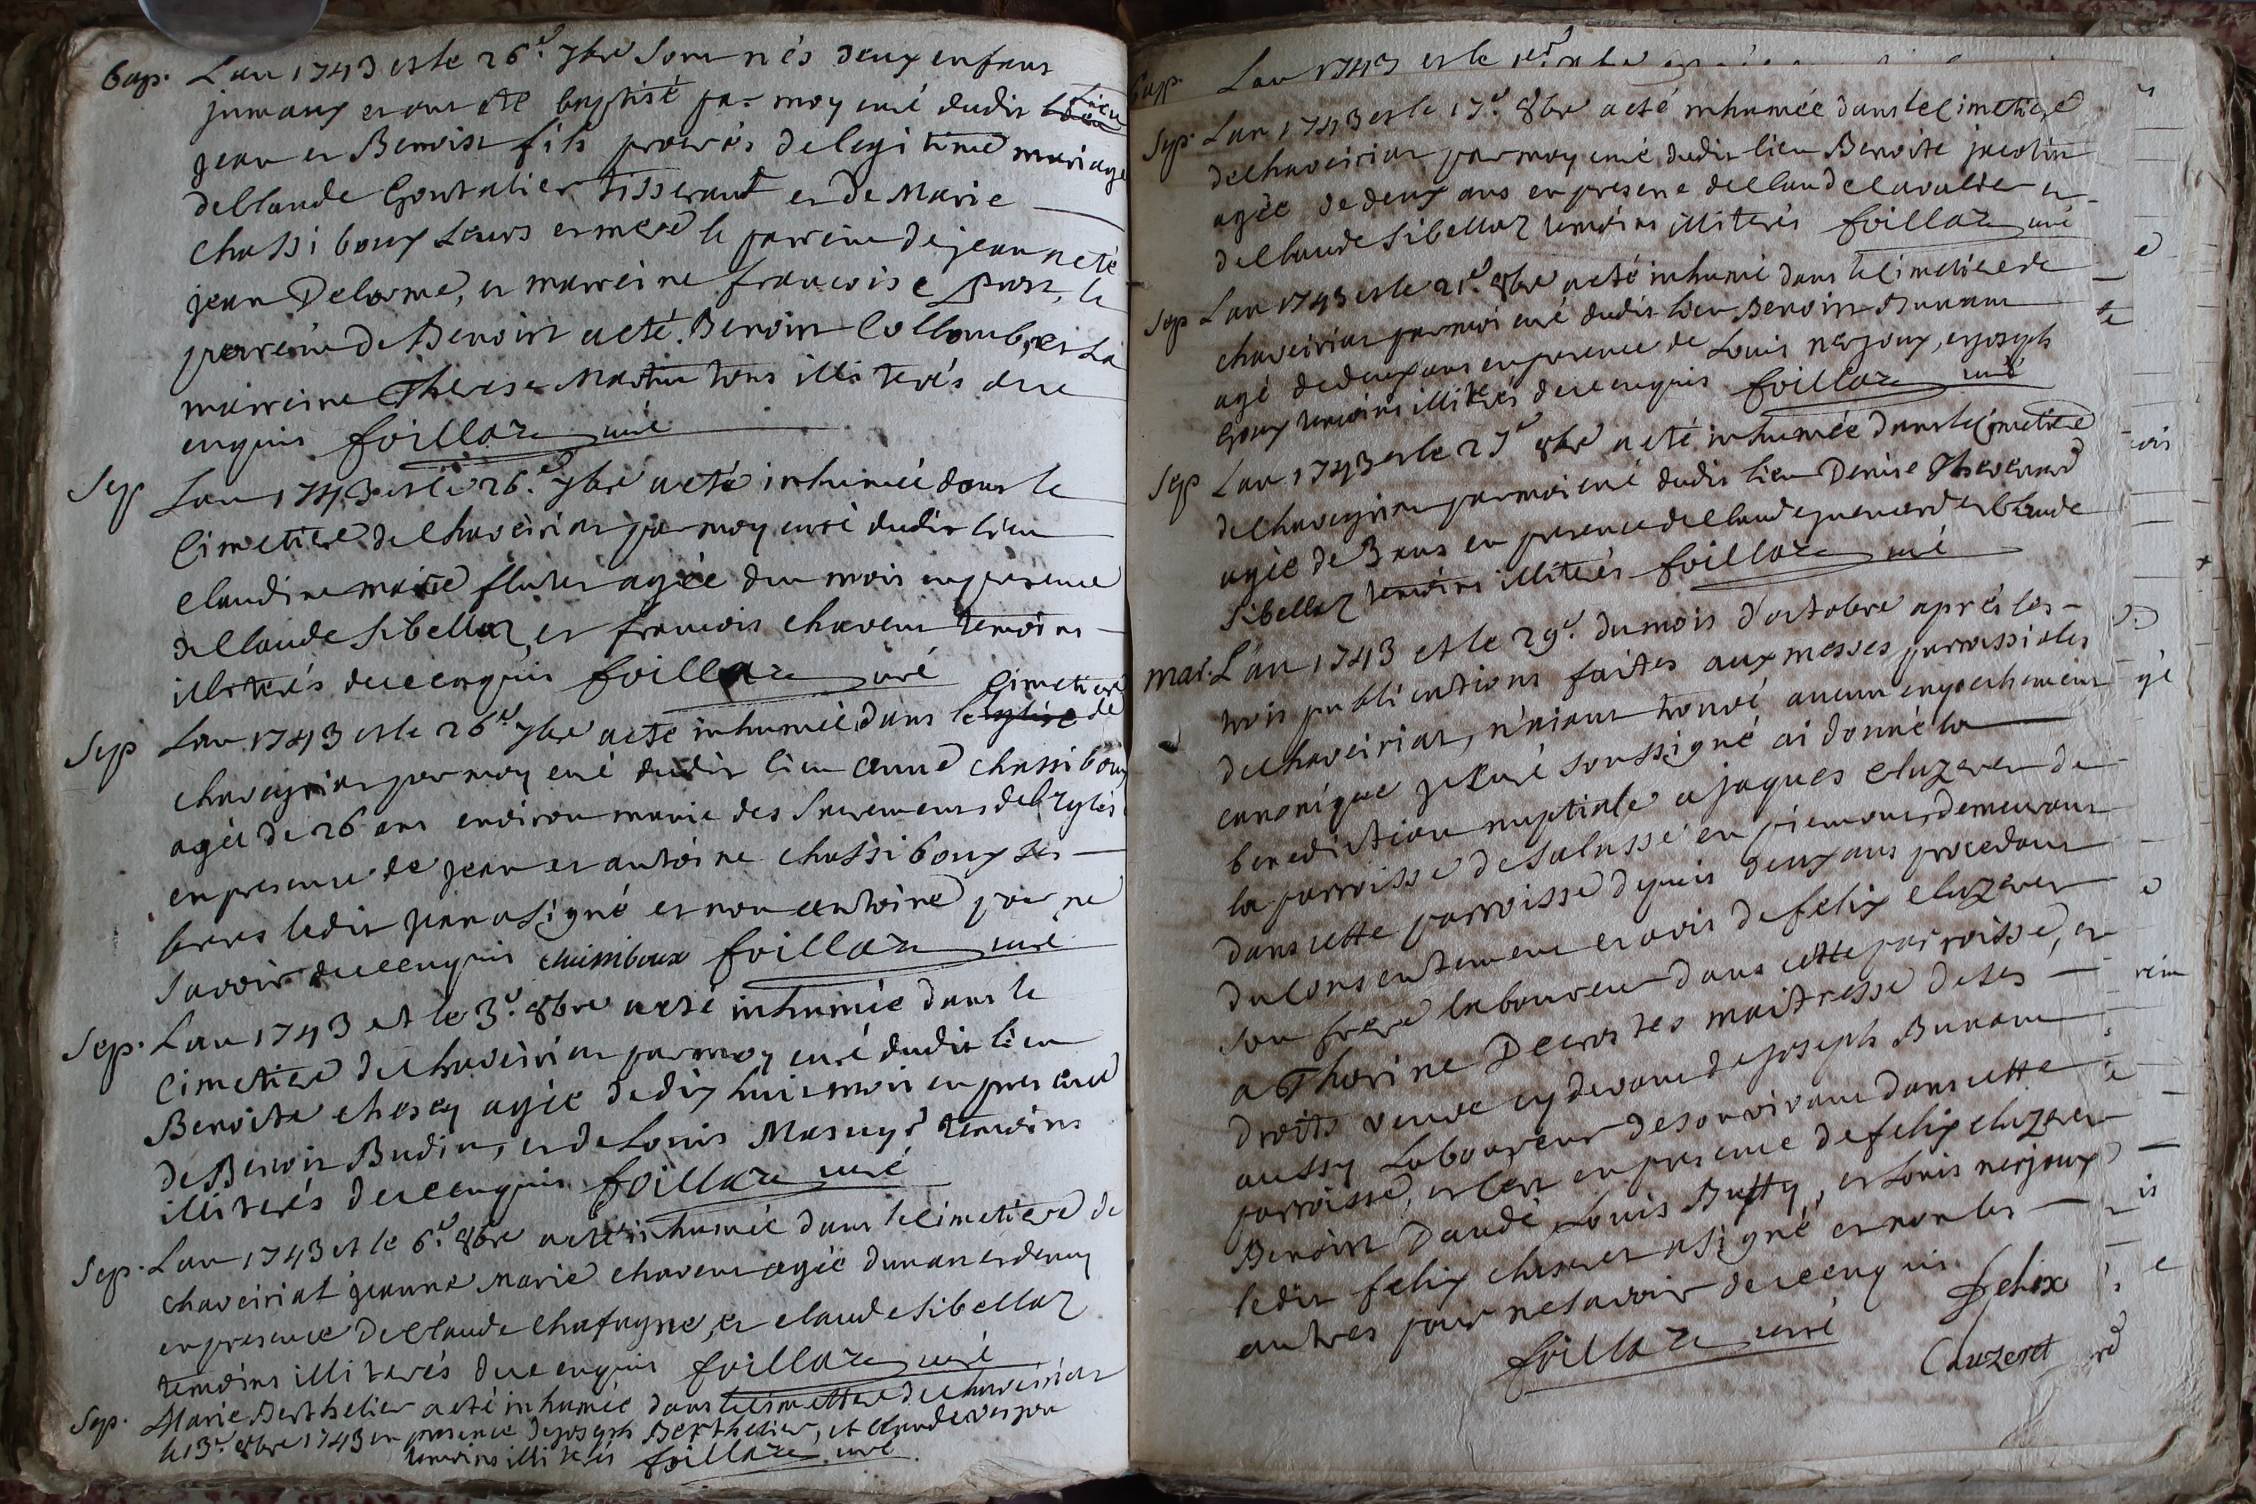 bap. Lan 1743 et le 26.e 7bre sont nés deux enfans
jumaux et ont été baptisé par moy curé dudit lieu
jean et Benoist fils procréés de legitime mariage
de Claude Gontalier tisserant et de Marie
Chassiboux leurs et mere le parrein de jean a eté
jean Delorme, et marreine francoise prost, le
parrein de Benoist a eté Benoist Collomb, et La
marreine Therese Martin tous illiterés de ce
enquis foillaz curé
Sep Lan 1743 et le 26.e 7bre a eté inhumée dans le
Cimetiere de Chaveiriat par moy curé dudit lieu
Claudine marie agée dun mois en presence
de Claude Sibellaz et francois chaveut temoins
illiterés de ce enquis foillaz curé
Sep Lan 1743 et le 26e 7bre a eté inhumée dans le eglise cimetiere de
chaveyriat par moy curé dudit lieu anne chassiboux
agée de 26 ans environ munie des Sacremens de l'Eglise
en presence de jean et antoine chassiboux ses
freres ledit jean a signé et non antoine pour ne
savoir de ce enquis chassiboux foillaz curé
Sep. Lan 1743 et le 3.e 8bre a eté inhumée dans le
Cimetiere de chaveiriat par moy curé dudit lieu
Benoite chesey agée de dix huit mois en presence
de Benoit Budin, et de Louis Masuy temoins
illiterés de ce enquis foillaz curé
Sep. Lan 1743 et le 6.e 8bre a eté inhumée dans le Cimetiere de
Chaveiriat jeanne Marie chaveut agée dun an et demy
en presence de Claude Chafagne, et claude Sibellaz
temoins illiterés de ce enquis foillaz curé
Sep. Marie Berthelier a eté inhumée dans le cimettere de chaveiriat
le 13.e 8bre 1743 en presence de joseph Berthelier, et claude
temoins illiterés foillaz curé
bap. Lan 1743 et le
Sep. Lan 1743 et le 17.e 8bre a eté inhumée dans le Cimetiere
de chaveiriat par moy curé dudit lieu Benoite jacolin
agée de deux ans en presence de Claude Cavalier et
de Claude Sibellaz temoins illiterés foillaz curé
Sep Lan 1743 et le 21.e 8bre a eté inhumé dans le cimetiere de
chaveiriat par moi curé dudit lieu Benoist Bunant
agé de deux ans en presence de Louis nerjoux, et joseph
Goux temoins illiterés de ce enquis foillaz curé
Sep Lan 1743 et le 27e 8bre a eté inhumée dans le Cimetiere
de Chaveyriat par moi curé dudit lieu Denise Thevenard
agée de 3 ans en presence de Claude guenard et Claude
Sibellaz temoins illiterés foillaz curé
mar. L'an 1743 et le 29.e du mois d'octobre aprés les
trois publications faites aux messes parroissiales
de chaveiriat, n'aiant trouvé aucun empechement
canonique je Curé soussigné ai donné la
benediction nuptiale a jaques cluzeret de
la parroisse de Salasse en piemont, demeurant
dans cette parroisse depuis deux ans procedant
du Consentement et avis de felix cluzeret
son frere laboureur dans cette parroisse, et
a Thorine Decrot tes maitresse de ses
droits veuve cydevant de joseph Bunant
aussy Laboureur de son vivant dans cette
parroisse, et cen en presence de felix cluzeret
Benoist Daudé, Louis Buffy, et Louis nerjoux
ledit felix cluzeret a signé et non les
autres pour ne savoir de ce enquis.
foillaz curé felix
Cauzeret